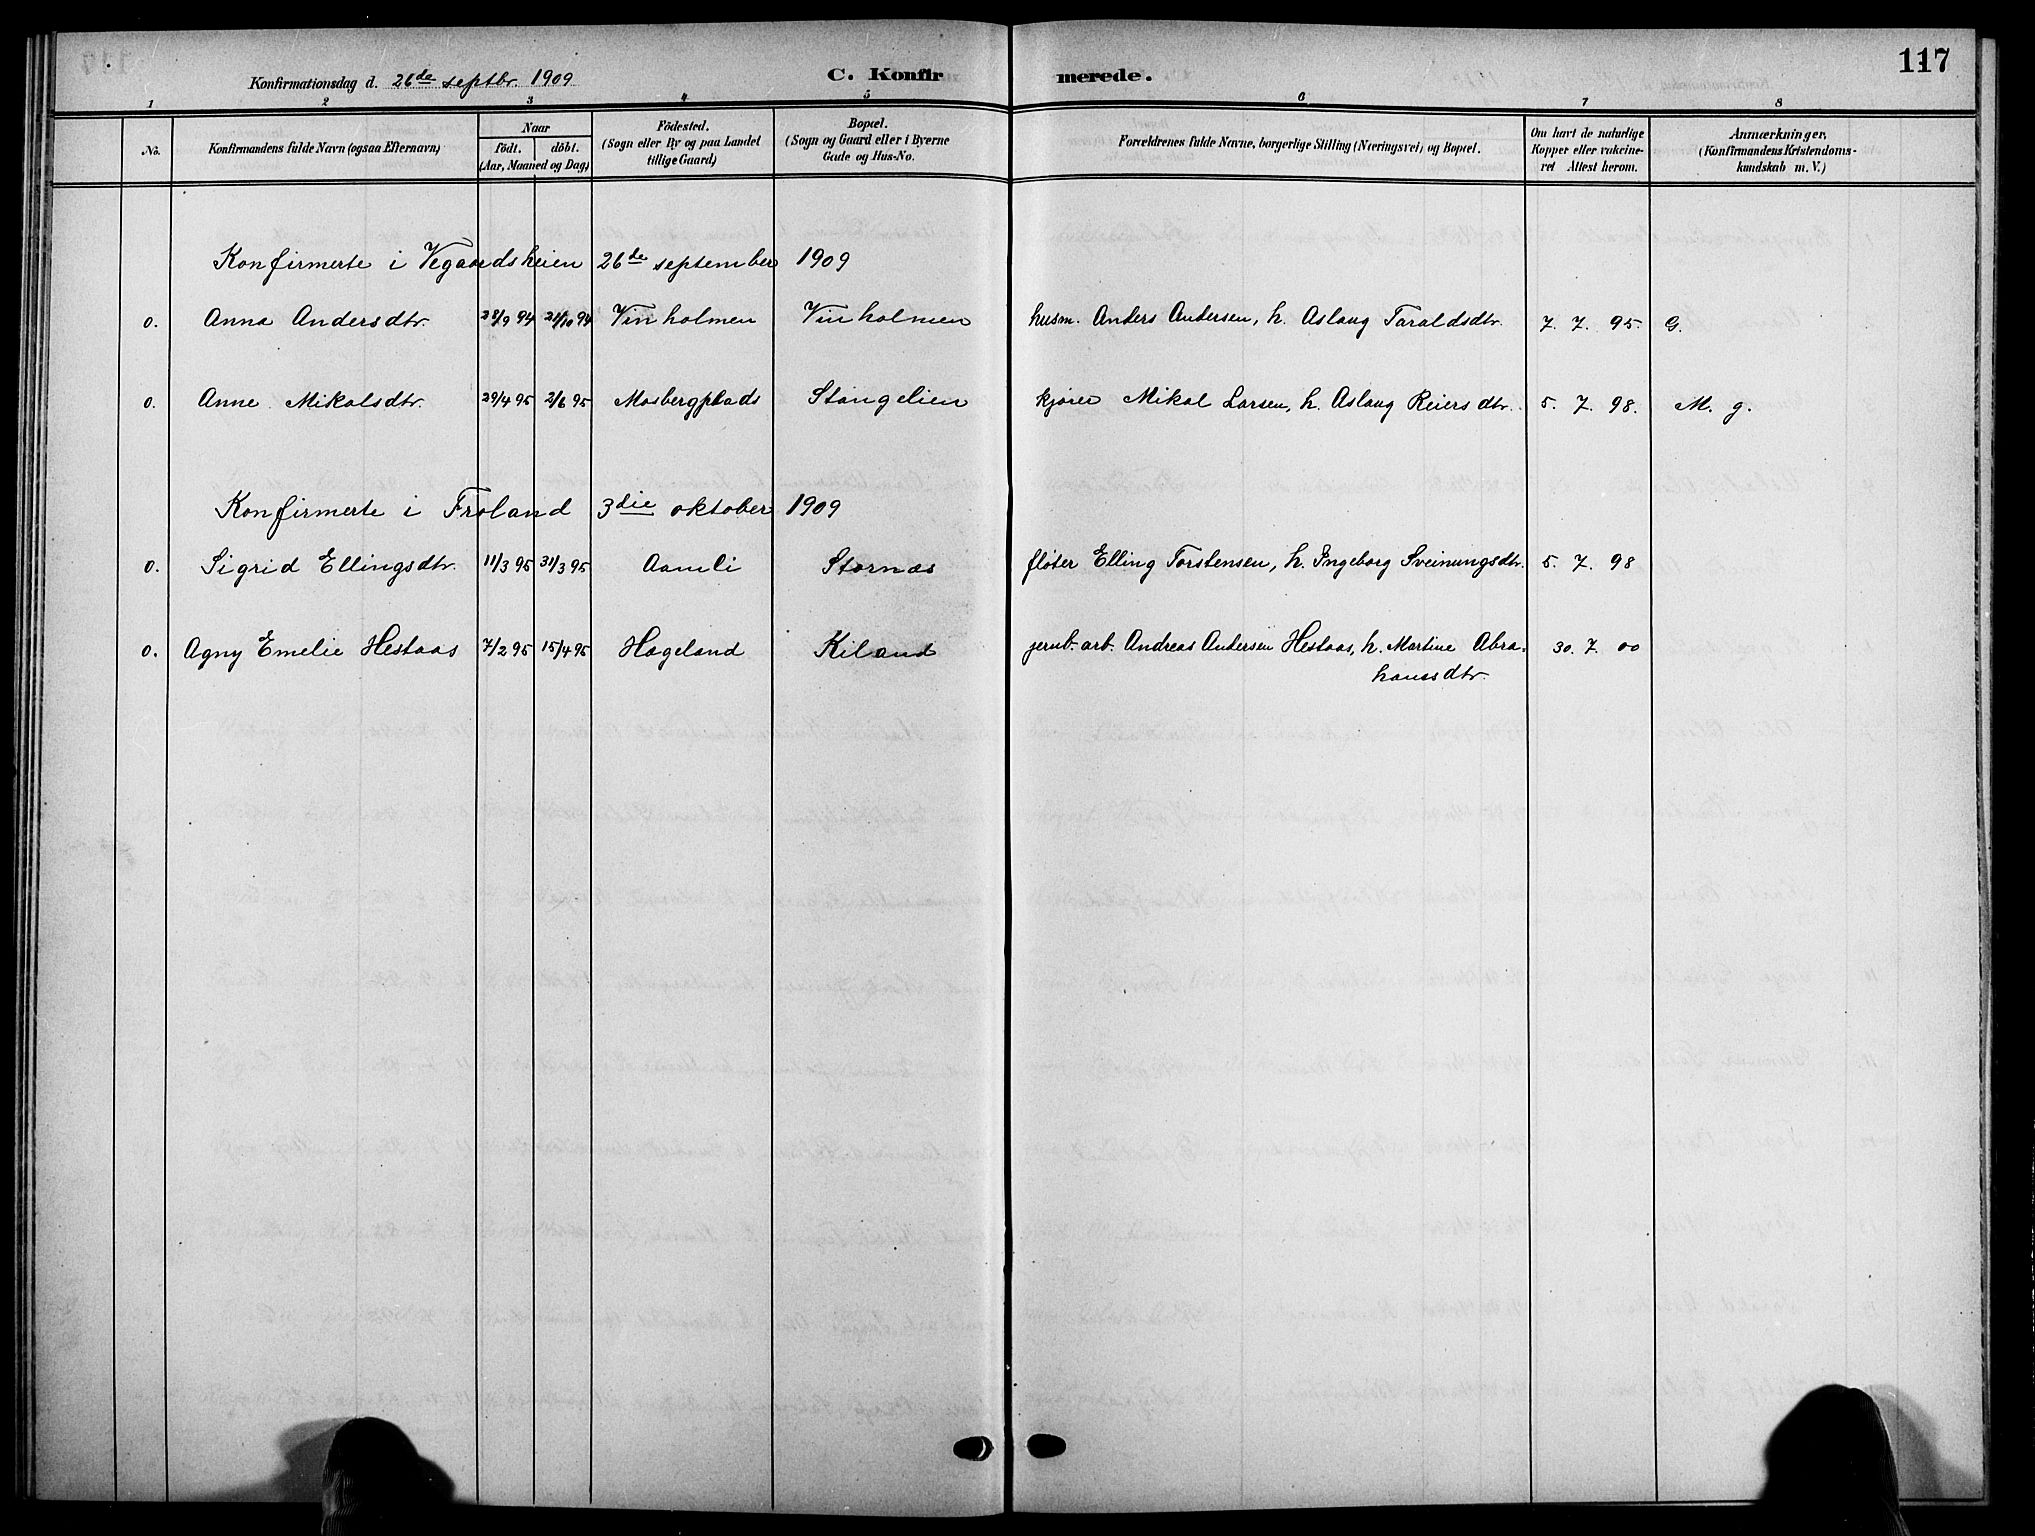 117
Konfirmationsdag d. 26de septbr. 1909 C. Konfirmerede.
1 2 3 4 5 6 7 8
No. Konfirmandens fulde Navn (ogsaa Efternavn) Naar födt. döbt. (Aar, Maaned og Dag) Födested. (Sogn eller By og paa Landet tillige Gaard) Bopæl. (Sogn og Gaard eller i Byerne Gade og Hus-No. Forældrenes fulde Navne, borgerlige Stilling (Næringsvei) og Bopæl. Om havt de naturlige Kopper eller vakcineret Attest herom. Anmærkninger, (Konfirmandens Kristendomskundskab m. V.)
Konfirmerte i Vegaardsheien 26de september 1909
0. Anna Andersdtr. 28/9 94 21/10 94 Vinholmen Vinholmen husm. Anders Andersen, h. Aslaug Taraldsdtr. 7. 7. 95. G.
0. Anne Mikalsdtr. 29/4 95 2/6 95 Mosbergplads Stangelien kjører Mikal Larsen, h. Aslaug Reiersdtr. 5. 7. 98. M. g.
Konfirmerte i Froland 3die oktober 1909
0. Sigrid Ellingsdtr. 11/3 95 31/3 95 Aamli Stornæs fløter Elling Torstensen, h. Ingeborg Sveinungsdtr. 5. 7. 98
0. Agny Emelie Hestaas 7/2 95 15/4 95 Hageland Kiland jernb. arb. Andreas Andersen Hestaas, h. Martine Abra-
hamsdtr. 30. 7. 00